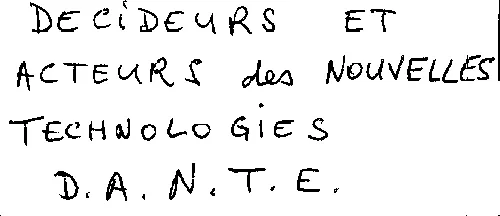 DECIDEURS ET
ACTEURS des NOUVELLES
TECHNOLOGIES
D.A.N.T.E.